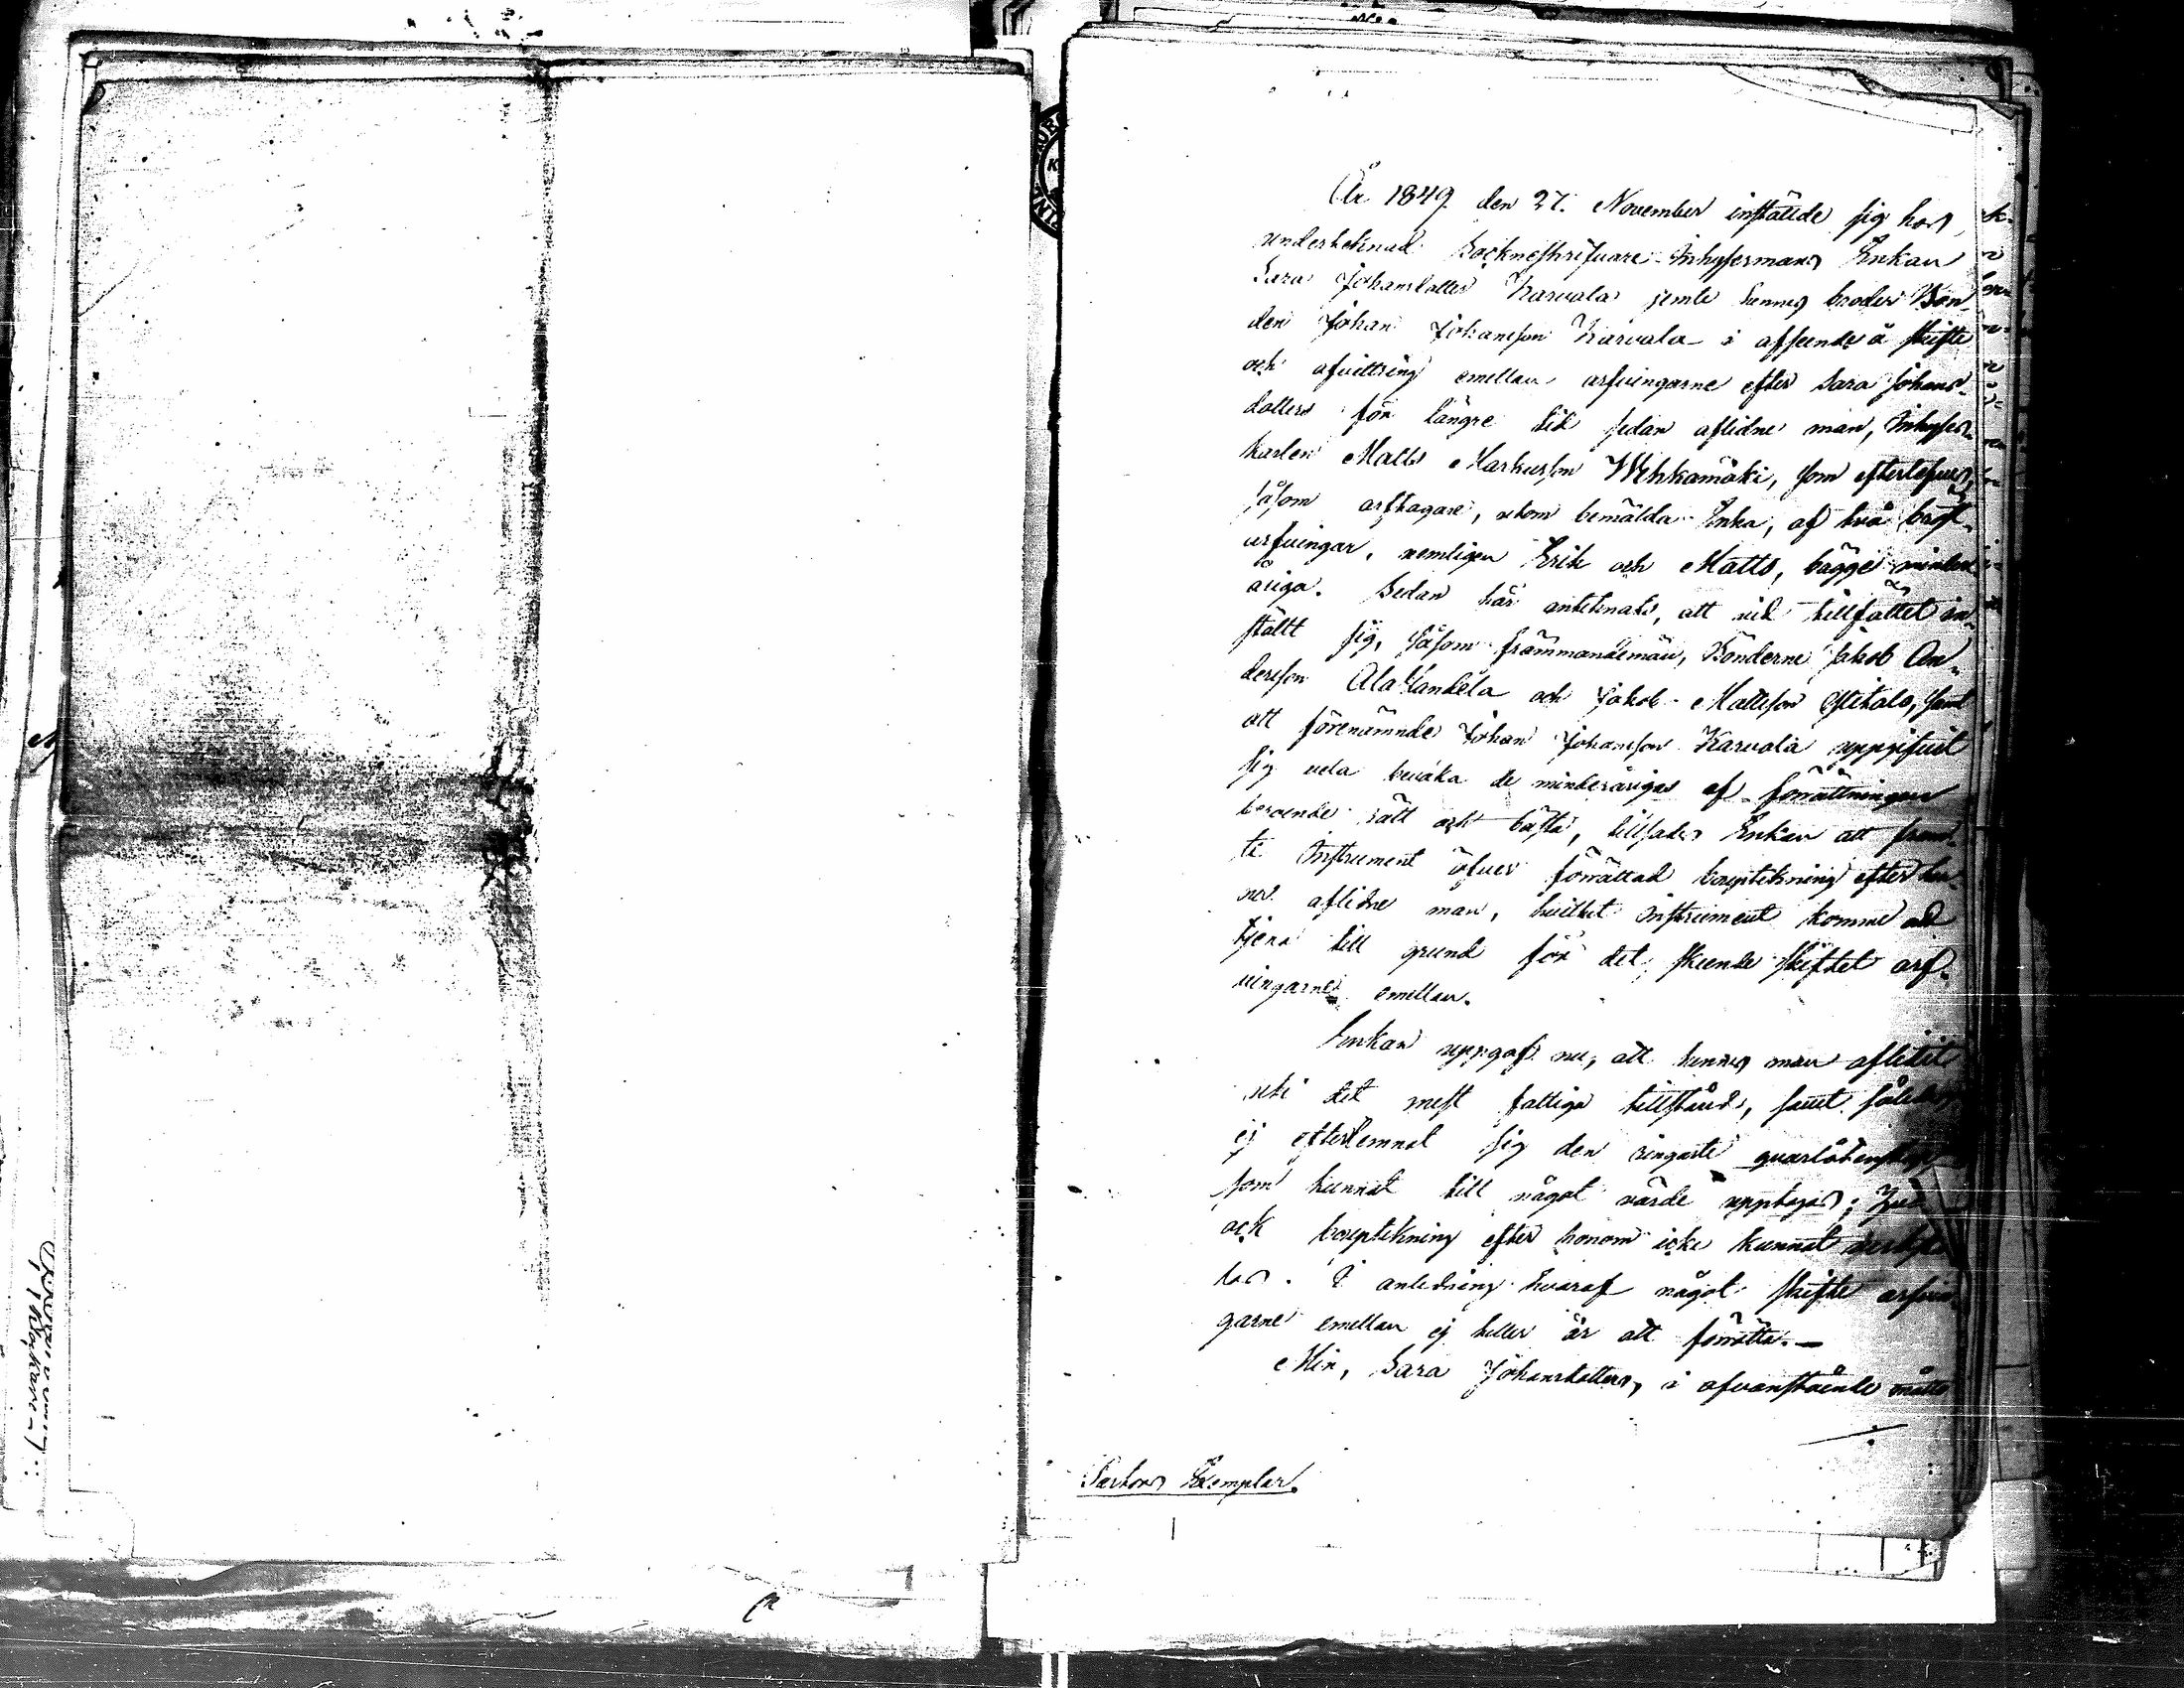 År 1849 den 27. November instälde sig hos
undertecknad Sockneskrifvare Inhysesmans Enkan
Sara Johansdotter Karvala jemte hennes broder Bon-
den Johan Johansson Karvala i afseende å skifte
och afvittring emellan arfvingarne efter Sara Johans-
dotters för längre tid sedan aflidne man, Inhyses-
karlen Matts Markusson Wehkamäki, som efterlefves,
såsom arftagare, utom bemälda Enka, af två bröst-
arfvingar, nemligen Erik och Matts, bägge minder-
åriga. Sedan här antecknats, att vid tillfället in-
stält sig, såsom främmandemän, Bönderne Jakob An-
dersson Ala Yandela och Jakob Mattsson Ylitalo, samt
att förenämnde Johan Johansson Karvala uppgifvit
sig vela bevaka de minderårigas af förrättningen
beroende rätt och bästa, tillsades Enkan att framt-
te Instrument öfver förrättad bouptekning efter hen-
nes aflidne man, hvilket Instrument komme att
tjena till grund för det skeende skiftet arf-
vingarne emellan.
Enkan uppgaf nu, att hennes man aflidit
uti det mest fattiga tillstånd, samt således
ej efterlemnat sig den ringaste qvarlåtenskap
som kunnat till något värde upptagas;
ock bouptekning efter honom icke kunnat
tas. I anledning hvaraf något skifte arfvin-
garne emellan ej heller är att förrätta.—
Min, Sara Johansdotters, i ofvanstående måtto
Parternas Exemplar.